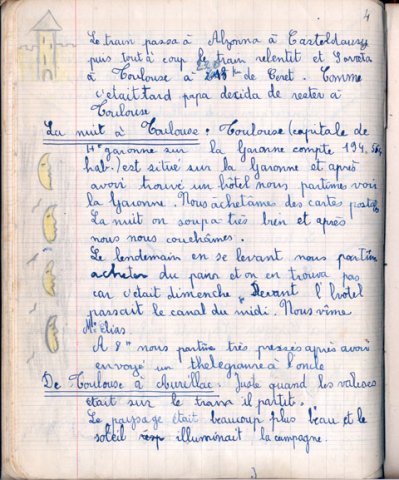 4
Le train passa à Alzonna à Casteldaury
puis tout à coup le train relentit et s'arreta
à Toulouse à km de Ceret. Comme
c'était tard papa decida de rester à
Toulouse
La nuit à Toulouse : Toulouse (capitale de
Hte garonne sur la Garonne compte 194.
hab.) est situé sur la Garonne et après
avoir trouvé un hôtel nous partîmes voir
la Garonne. Nous achetâmes des cartes postales
La nuit on soupa très bien et après
nous nous couchâmes.
Le lendemain en se levant nous partîmes
acheter du pain et on en trouva pas
car c'était dimenche. Devant l'hotel
passait le canal du midi. Nous vîme
Mr Elias.
A 8h nous partîme très pressés après avoir
envoyé un thelegramme à l'oncle
De Toulouse à Aurillac. Juste quand les valises
était sur le train il partit.
Le paysage était beaucoup plus beau et le
soleil illuminait la campagne.